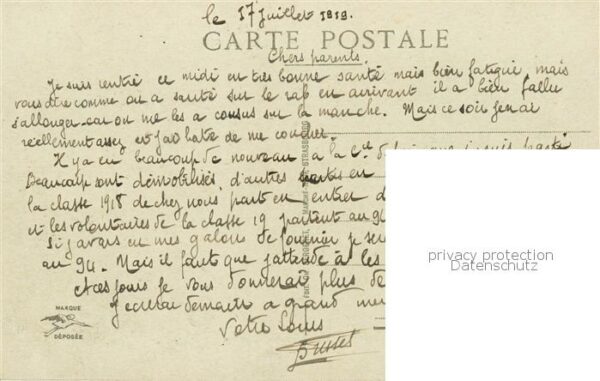 le 17 juillet 1919.
CARTE POSTALE
Chers parents.
Je suis rentré ce midi en très bonne santé mais bien fatigué, mais
vous dire comme on a sauté sur le rab en arrivant il a bien fallu
s'allonger car on me les a cousus sur la manche. Mais ce soir j'en ai
réellement assez et j'ai hâte de me coucher.
Il y a eu beaucoup de nouveau à la Cie depuis que je suis parti
Beaucoup sont démobilisés, d'autres en
la classe 1918 de chez nous part en
et les volontaires de la classe 19 partent au 94
Si j'avais eu mes galons de fourrier je ser
au 94. Mais il faut que j'attende à les
Ces jours je vous donnerai plus de
J'écrirai demain a grand mè
Votre Louis
MARQUE
DÉPOSÉE
STRASBOURG
privacy protection
Datenschutz